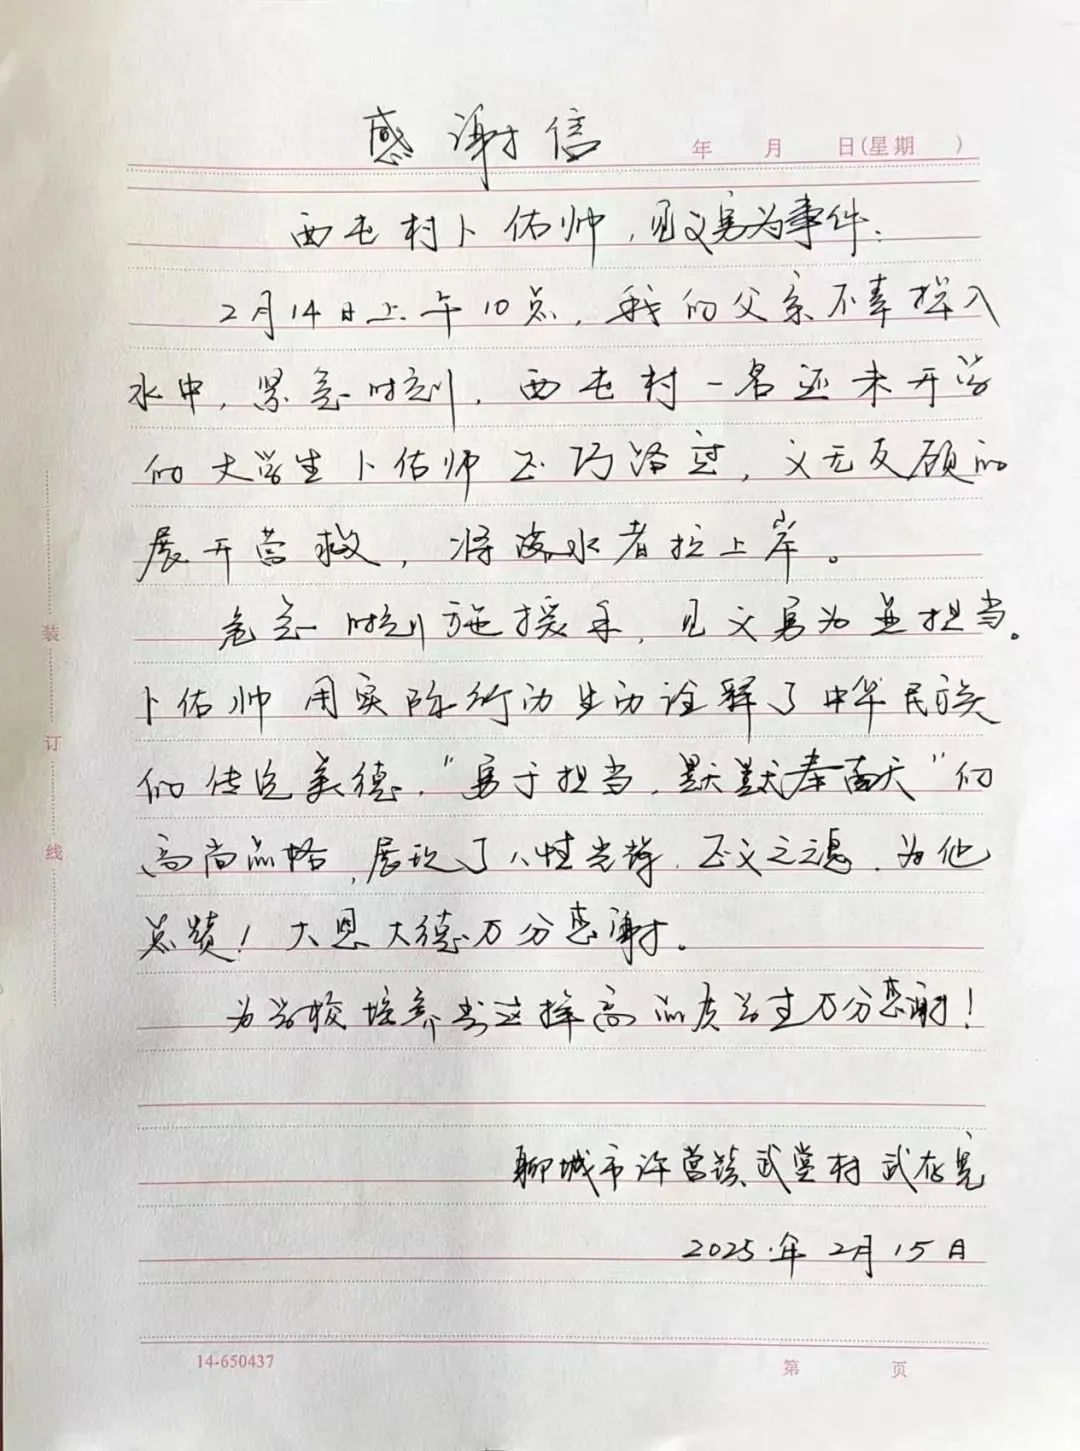 感谢信
年 月 日(星期 )
西屯村卜佑帅,见义勇为事件:
2月14日上午10点,我的父亲不幸掉入
水中,紧急时刻,西屯村一名还未开学
的大学生卜佑帅正巧路过,义无反顾的
展开营救,将落水者拉上岸。
危急时刻施援手,见义勇为显担当。
卜佑帅用实际行动生动诠释了中华民族
的传统美德,"勇于担当,默默奉献"的
高尚品格,展现了人性光辉,正义之魂,为他
点赞!大恩大德万分感谢。
为学校培养出这样高品质学生万分感谢!
聊城市许营镇武堂村 武存
2025年2月15日
装
订
线
14-650437
第 页